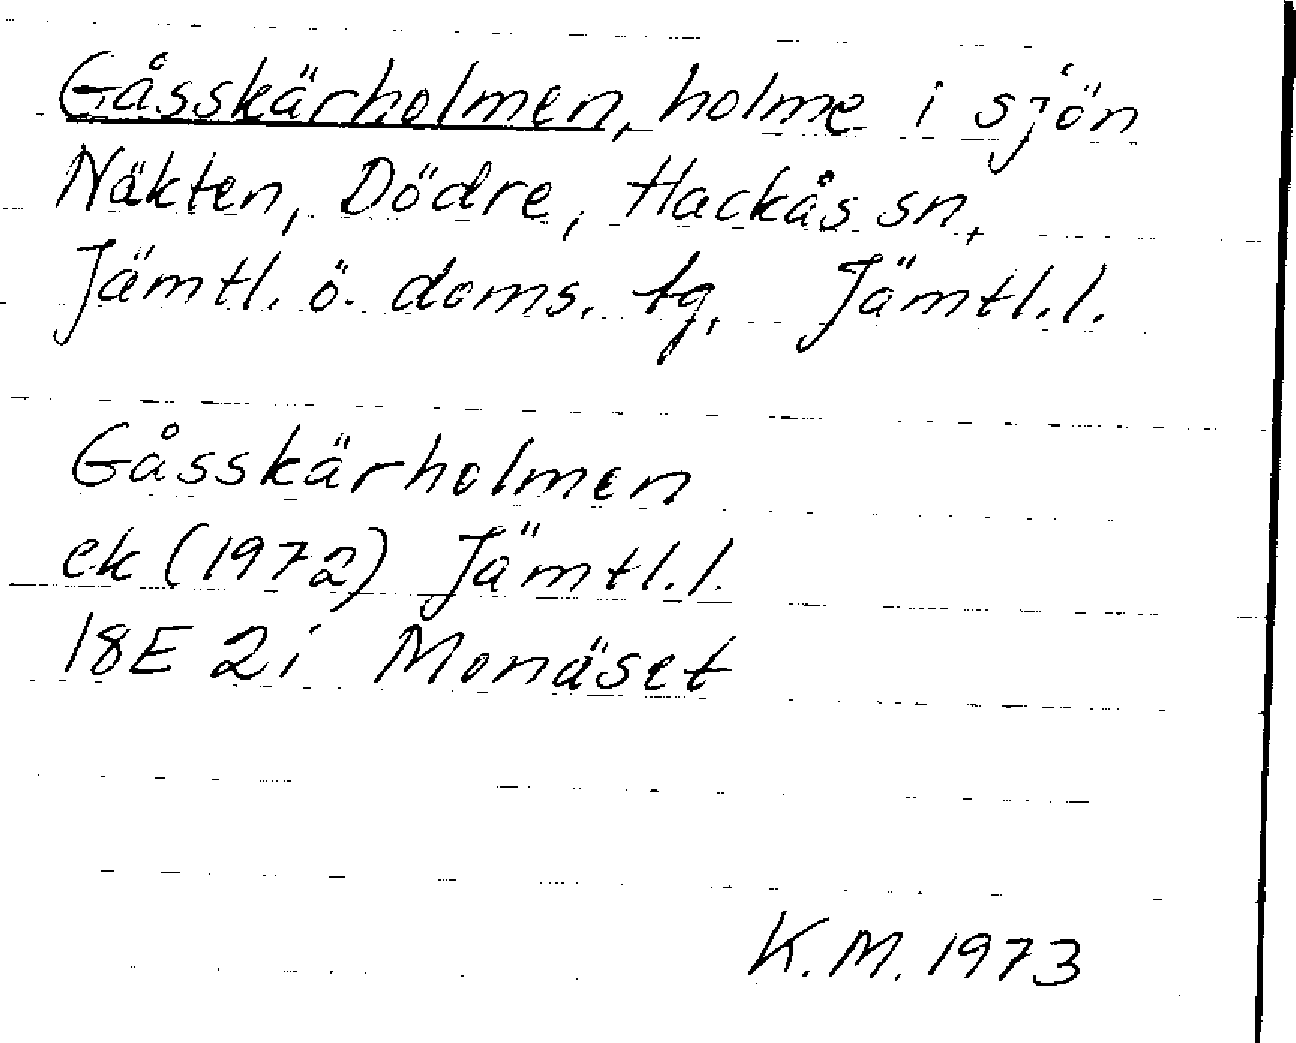 Gåsskärholmen, holme i sjön
Näkten, Dödre, Hackås sn,
Jämtl. ö. doms. tg, Jämtl.l.
Gåsskärholmen
ek (1972) Jämtl.l.
18E 2i Monäset
K.M. 1973